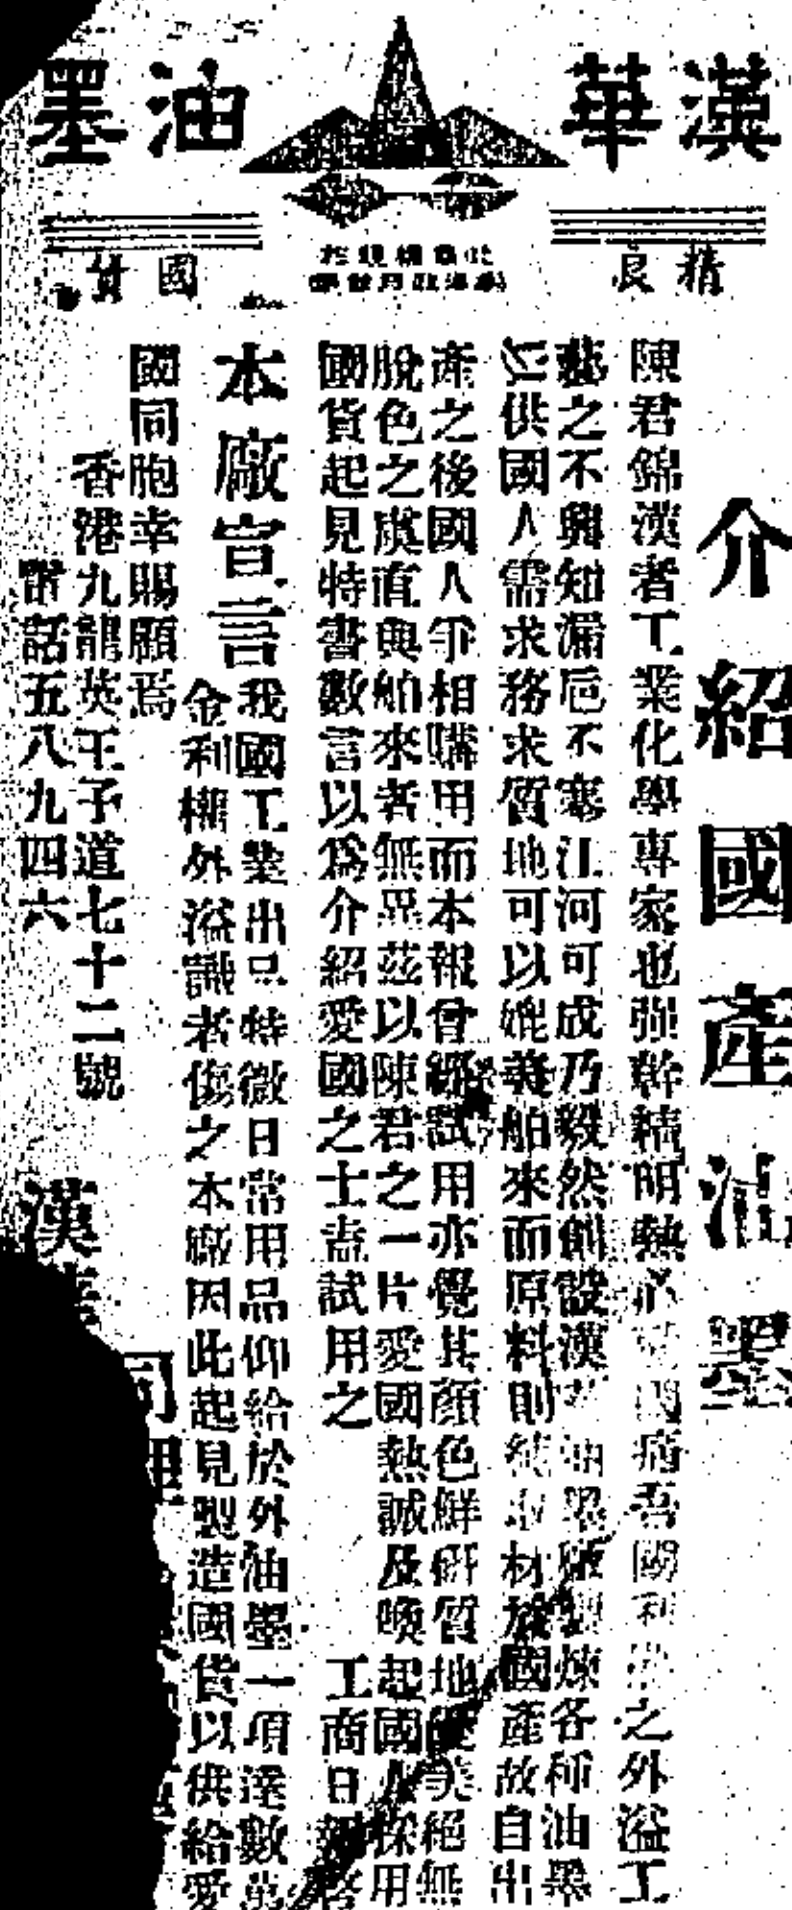 漢華油墨
精良
國貨
介紹國產油墨
陳君錦漢者工業化學專家也強幹精明熱心愛國痛吾國利權之外溢工
藝之不興知漏巵不塞江河可成乃毅然創設漢華油墨廠製煉各種油墨
以供國人需求務求質地可以媲美舶來而原料則純取材於國產故自出
產之後國人爭相購用而本報曾經試用亦覺其顏色鮮妍質地優美絕無
脫色之虞直與舶來者無異茲以陳君之一片愛國熱誠及喚起國人採用
國貨起見特書數言以爲介紹愛國之士盍試用之
工商日報啓
本廠宣言
我國工業出品特微日常用品仰給於外油墨一項達數萬
金利權外溢識者傷之本廠因此起見製造國貨以供給愛
國同胞幸賜顧焉
香港九龍英王子道七十二號
電話五八九四六
漢華
司理